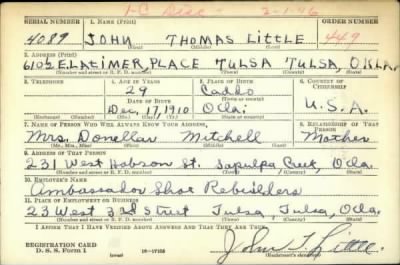 1-C Disc. 2-1-46
SERIAL NUMBER 1. NAME (Print) ORDER NUMBER
4089 JOHN THOMAS LITTLE 449
(First) (Middle) (Last)
2. ADDRESS (Print)
6102 E. LATIMER, PLACE TULSA TULSA, OKLA.
(Number and street or R. F. D. number) (Town) (County) (State)
3. TELEPHONE 4. AGE IN YEARS 5. PLACE OF BIRTH 6. COUNTRY OF CITIZENSHIP
29 Caddo
DATE OF BIRTH (Town or county)
Dec, 19, 1910 Okla. U.S.A.
(Exchange) (Number) (Mo.) (Day) (Yr.) (State or country)
7. NAME OF PERSON WHO WILL ALWAYS KNOW YOUR ADDRESS 8. RELATIONSHIP OF THAT PERSON
Mrs. Mitchell Mother
(Mr., Mrs., Miss) (First) (Middle) (Last)
9. ADDRESS OF THAT PERSON
231 West Hobson St. Sapulpa Creek, Okla.
(Number and street or R. F. D. number) (Town) (County) (State)
10. EMPLOYER'S NAME
Ambassador Shoe Rebuilders
11. PLACE OF EMPLOYMENT OR BUSINESS
23 West 3rd Street Tulsa, Tulsa, Okla.
(Number and street or R. F. D. number) (Town) (County) (State)
I AFFIRM THAT I HAVE VERIFIED ABOVE ANSWERS AND THAT THEY ARE TRUE.
REGISTRATION CARD
D. S. S. Form 1 John T. Little.
(Registrant's signature)